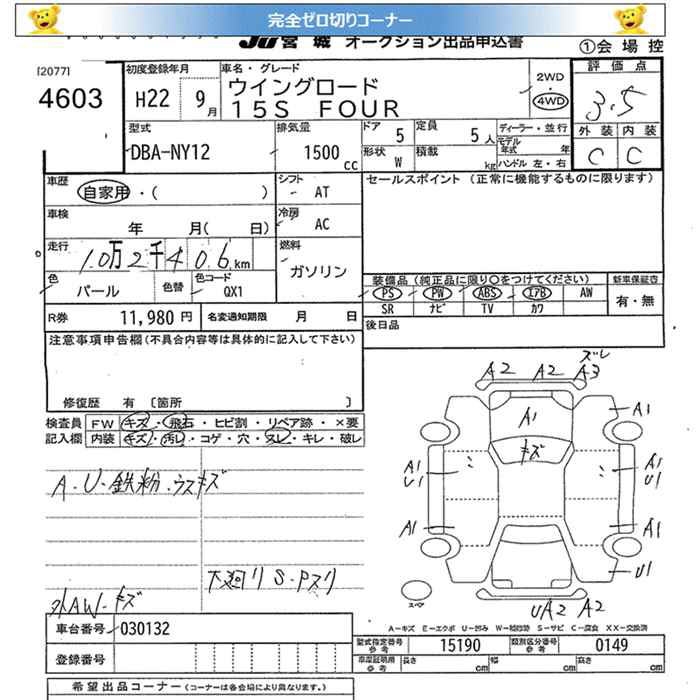 完全ゼロ切りコーナー
JU宮城 オークション出品申込書
①会場控
[2077]
4603
初度登録年月
H22 9月
車名・グレード
ウイングロード
15S FOUR
2WD
・
4WD
評価点
3.5
外装 内装
C C
型式
DBA-NY12
排気量
1500 cc
ドア 5
形状 W
定員 5人
積載 kg
ディーラー・並行
モデル年式 年
ハンドル 左・右
車歴
自家用・( )
シフト AT
セールスポイント (正常に機能するものに限ります)
車検
年 月( 日)
冷房 AC
走行
10万2千406km
燃料
ガソリン
色
パール
色替
色コード
QX1
装備品 (純正品に限り○をつけてください)
新車保証書
PS PW ABS エアB AW
有・無
SR ナビ TV カワ
R券 11,980 円
名変通知期限 月 日
後日品
注意事項申告欄(不具合内容等は具体的に記入して下さい)
修復歴 有 〔箇所 〕
検査員記入欄
FW キズ・飛石・ヒビ割・リペア跡・×要
内装 キズ・汚レ・コゲ・穴・スレ・キレ・破レ
A・U・鉄粉・ウスキズ
下廻り S・Pスリ
外AW・キズ
ズレ
A2 A2 A3
A1
A1
キズ
A1
U1
A1
U1
A1
A1
U1
スペア
UA2 A2
A−キズ E−エクボ U−凹み W−補修跡 S−サビ C−腐食 XX−交換済
車台番号 030132
型式指定番号 参考 15190
類別区分番号 参考 0149
登録番号
車庫証明用 参考
長さ cm 幅 cm 高さ cm
希望出品コーナー (コーナーは各会場により異なります。)